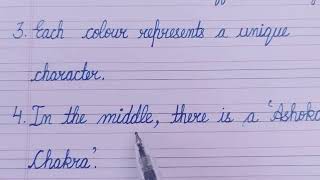 3. Each colour represents a unique
character.
4. In the middle, there is a 'Ashoka
Chakra'.